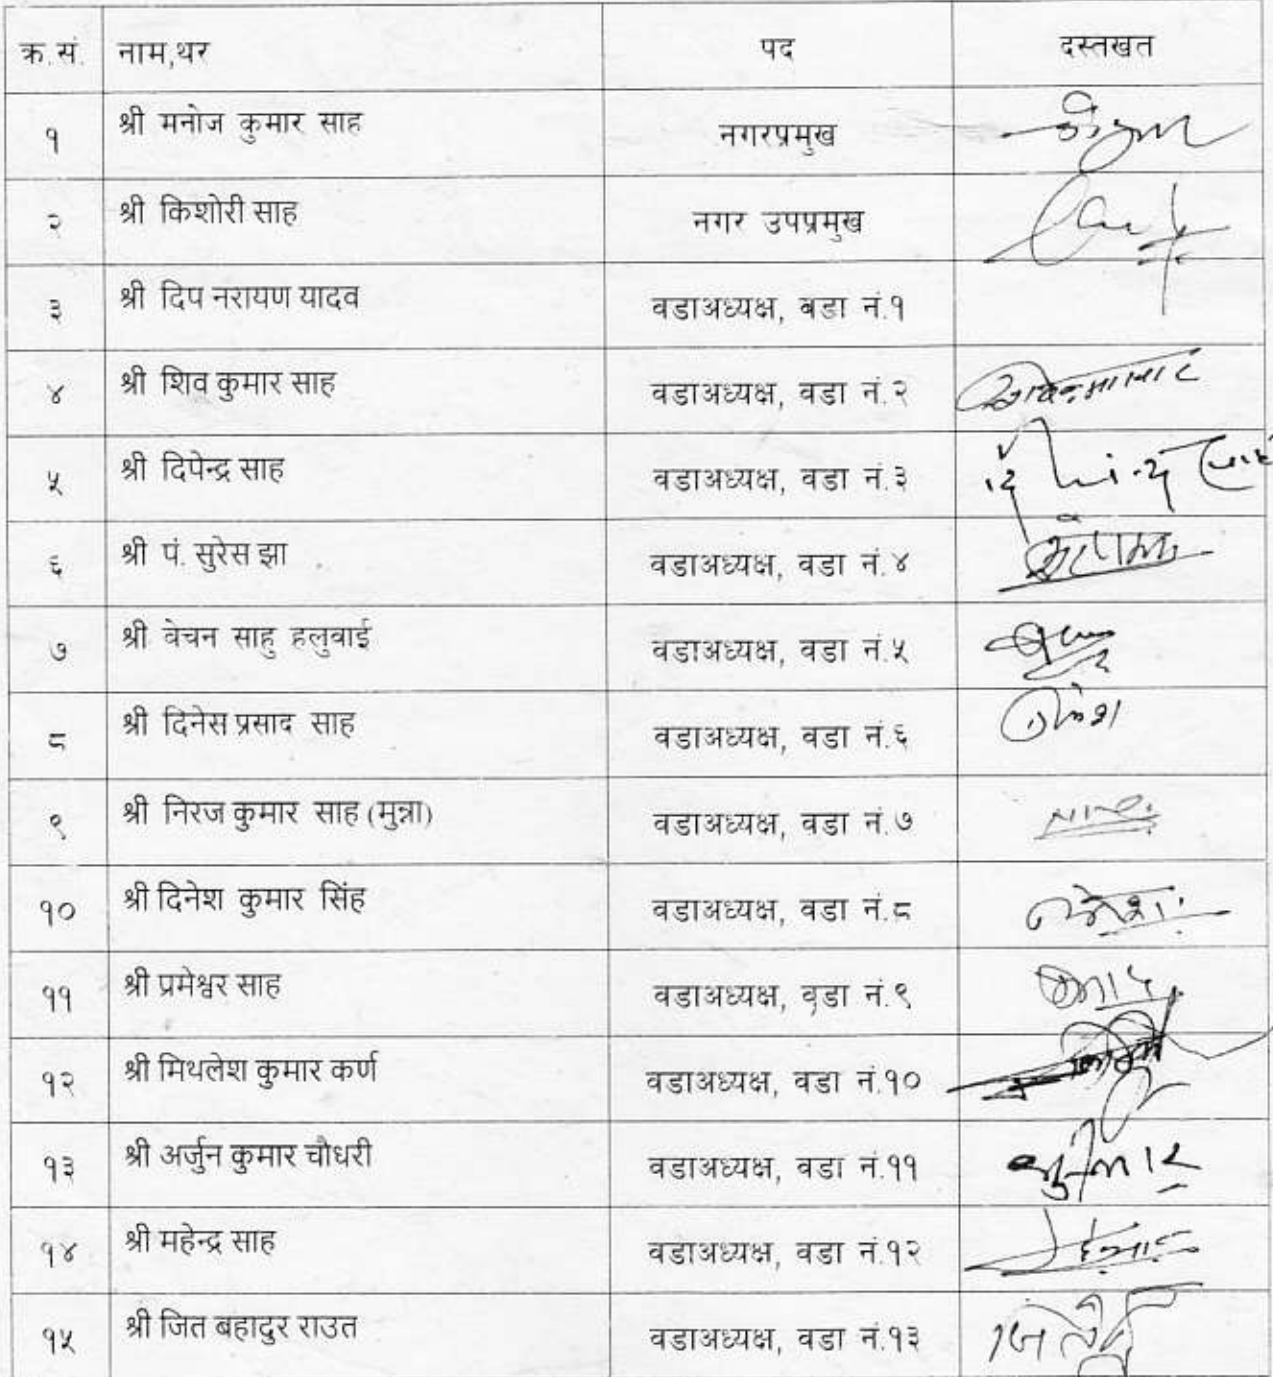 क्र.सं. नाम,थर पद दस्तखत
१ श्री मनोज कुमार साह नगरप्रमुख
२ श्री किशोरी साह नगर उपप्रमुख
३ श्री दिप नरायण यादव वडाअध्यक्ष, वडा नं.१
४ श्री शिव कुमार साह वडाअध्यक्ष, वडा नं.२
५ श्री दिपेन्द्र साह वडाअध्यक्ष, वडा नं.३
६ श्री पं. सुरेस झा वडाअध्यक्ष, वडा नं.४
७ श्री वेचन साहु हलुवाई वडाअध्यक्ष, वडा नं.५
८ श्री दिनेस प्रसाद साह वडाअध्यक्ष, वडा नं.६
९ श्री निरज कुमार साह (मुन्ना) वडाअध्यक्ष, वडा नं.७
१० श्री दिनेश कुमार सिंह वडाअध्यक्ष, वडा नं.८
११ श्री प्रमेश्वर साह वडाअध्यक्ष, वडा नं.९
१२ श्री मिथलेश कुमार कर्ण वडाअध्यक्ष, वडा नं.१०
१३ श्री अर्जुन कुमार चौधरी वडाअध्यक्ष, वडा नं.११
१४ श्री महेन्द्र साह वडाअध्यक्ष, वडा नं.१२
१५ श्री जित बहादुर राउत वडाअध्यक्ष, वडा नं.१३